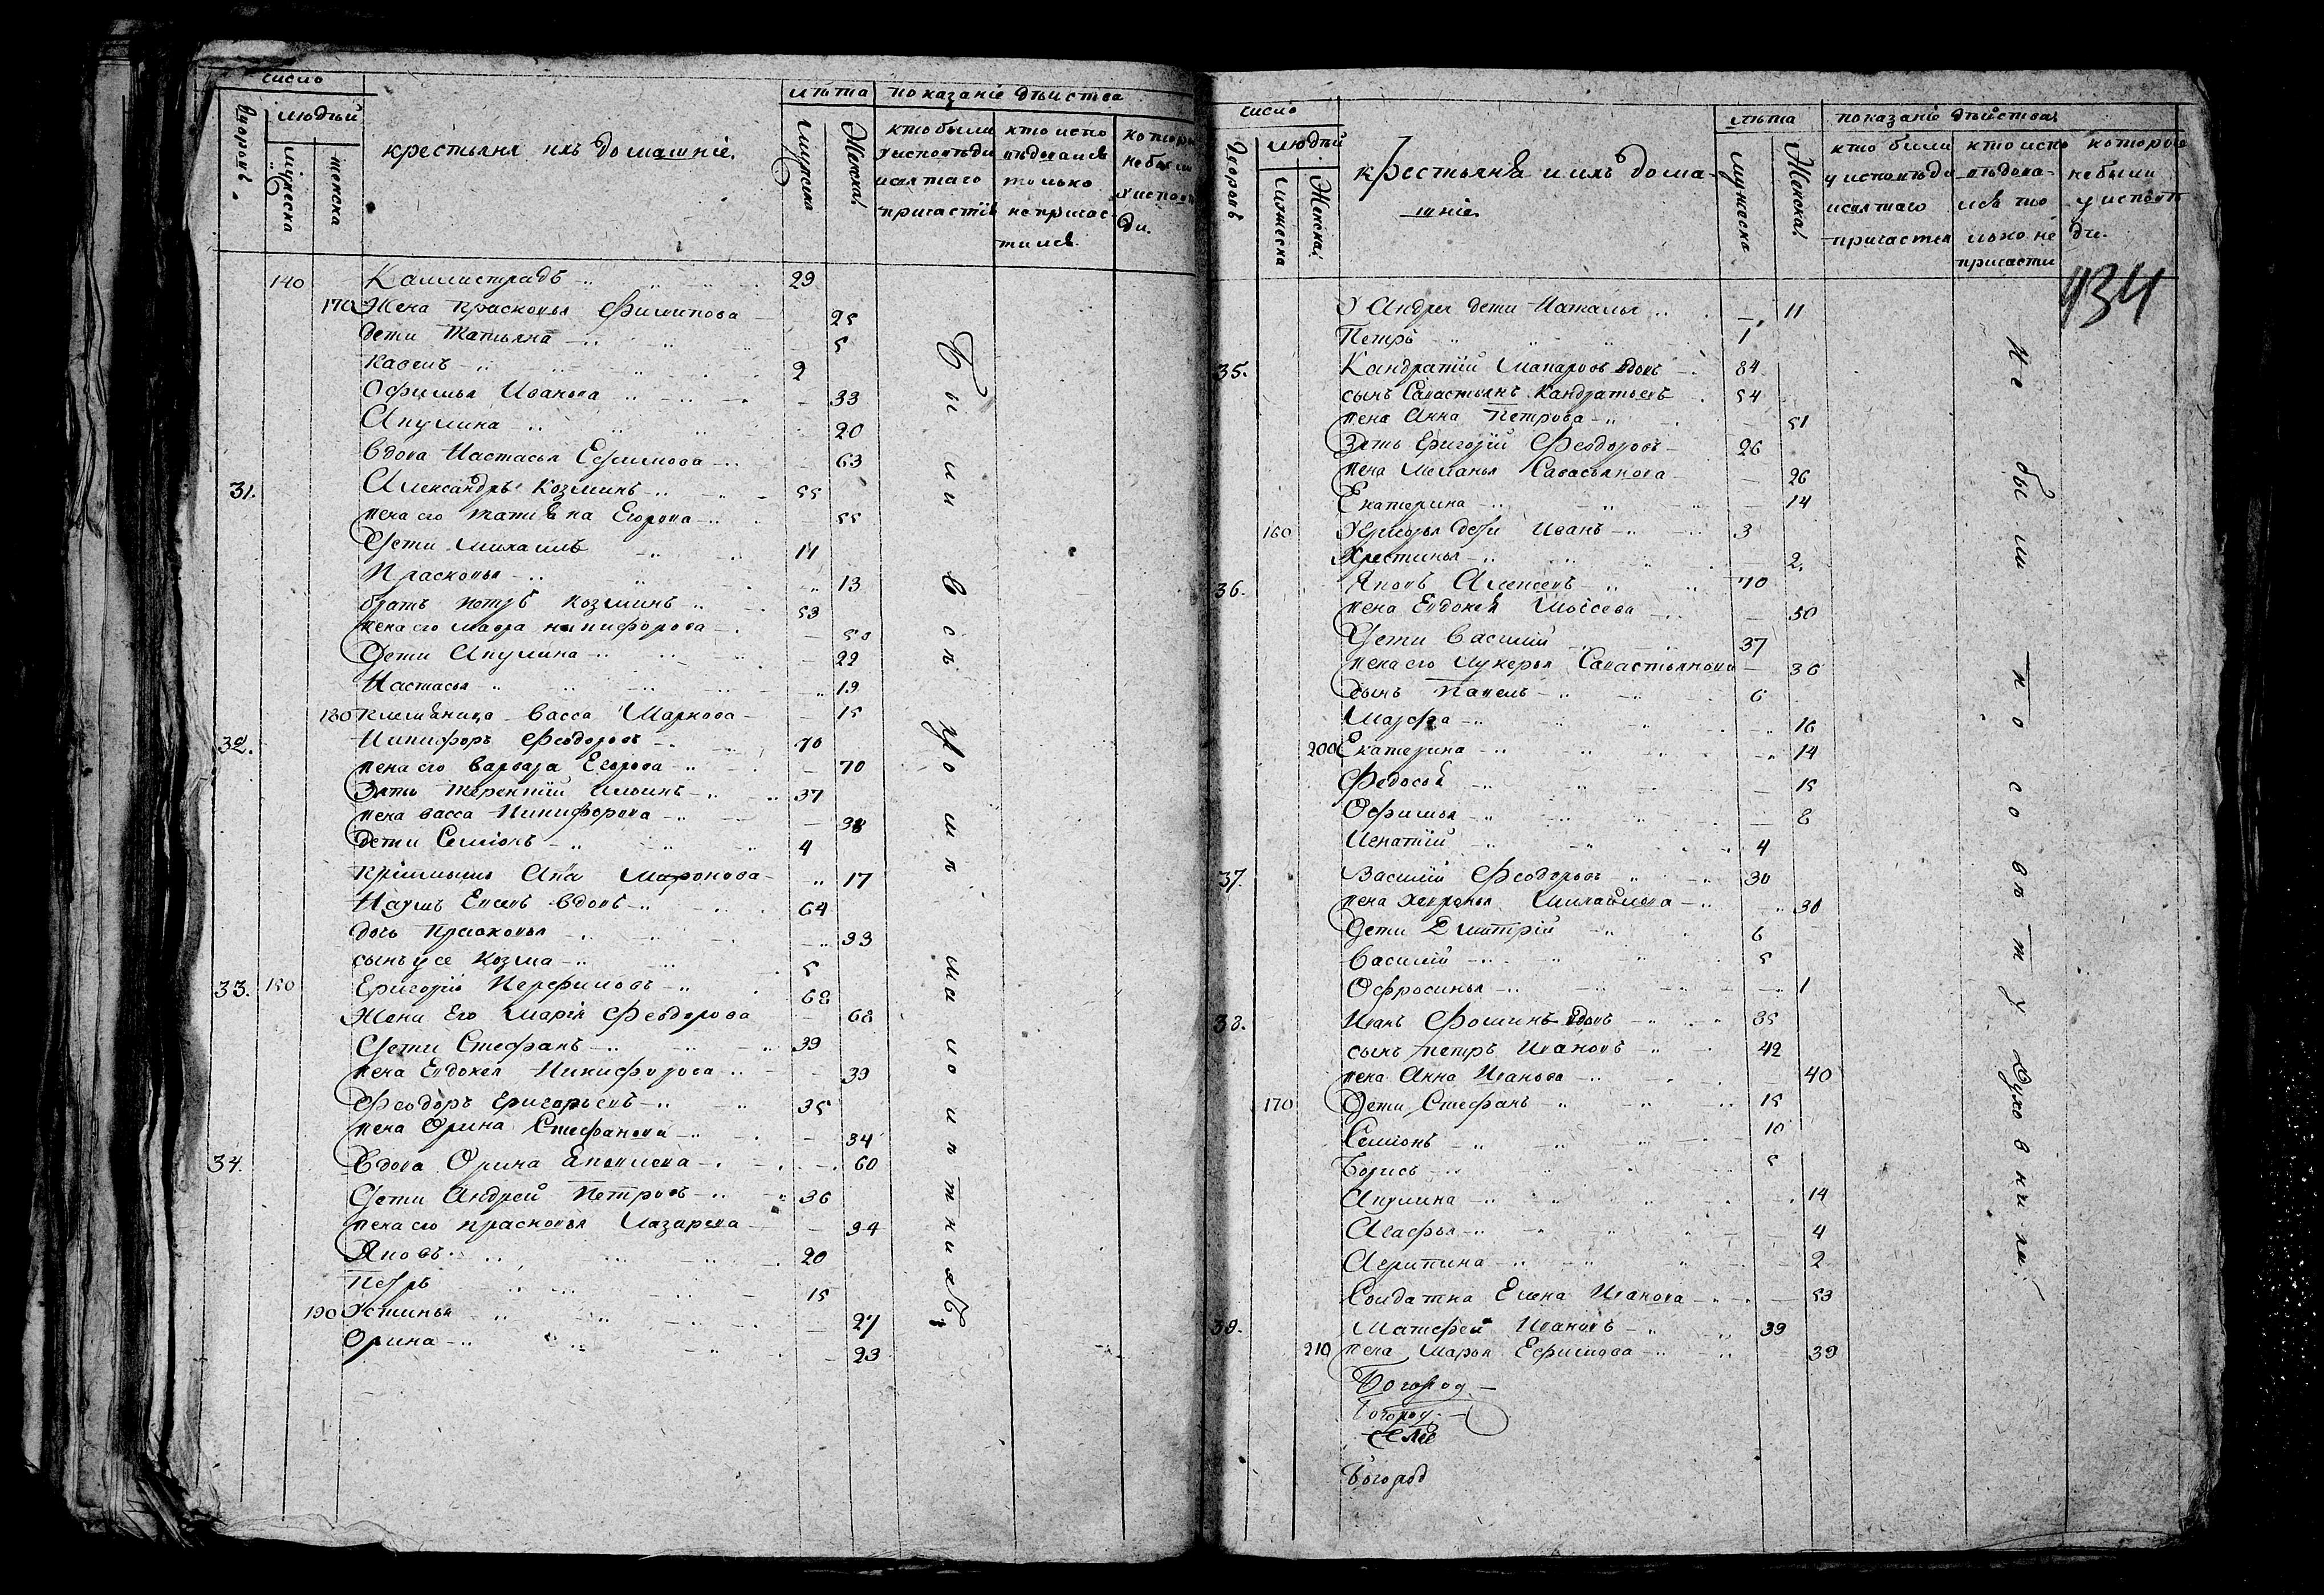 число
людѣй
лѣта показаніе дѣйства
дворовъ
мужеска
женска
крестьяня ихъ домашніе.
мужска
Женска
кто были
у исповѣди
исвятаго
причастія
кто испо
вѣдовался
только
не причас
тился
которы
не были
у испов
ди.
140 Каллистратъ 29
170 Жена Прасковья Филипова 25
дети Татьяна 5
Павелъ 2
Офимья Иванова 33
Акулина 20
Вдова Настасья Ефимова 63
31. Александръ Козминъ 55
жена его Татіяна Егорова 55
Дети Михаилъ 11
Прасковья 13
братъ Петръ Козминъ 53
жена его Мавра Никифорова 50
Дети Акулина 22
Настасья 19
180 племяница Васса Маркова 15
32. Никифоръ Феодоровъ 70
жена его Варвара Егорова 70
Зять Терентий Ильинъ 37
жена Васса Никифорова 38
дети Семіонъ 4
Ана Миронова 17
Наумъ вдовъ 64
дочь Прасковья 33
сынъ у ее Козма 5
33. 150 Григорій Перфиловъ 68
Жена Его Марія Феодорова 68
Дети Стефанъ 39
жена Евдокея Никифорова 39
Феодоръ Григорьевъ 35
жена Орина Стефанова 34
34. Вдова Орина 60
Дети Андрей Петровъ 36
жена его Прасковья Лазарева 34
Яковъ 20
Петръ 15
190 Устинья 27
Орина 23
Были в сп
число
людѣй
лѣта показаніе дѣйства
дворовъ
мужеска
Женска
крестьяня и ихъ дома-
шніе
мужеска
Женска
кто были
у исповѣди
исвятаго
причастія
кто испо
вѣдова-
лся то
лько не
причасти
которые
не были
у исповѣ
ди.
434
У Андрея дети Наталья 11
Петръ 1
35. Кандратий Макаровъ вдовъ 84
сынъ Савастьянъ Кандратьевъ 54
жена Анна Петрова 51
Зять Григорій Феодоровъ 26
жена Меланья Савасьянова 26
Екатерина 14
160 У Григорья дети Иванъ 3
Хрестинья 2
36. Яковъ Алексеевъ 70
жена Евдокея Моісеева 50
Дети Василий 37
жена его Лукерья Савастьянова 36
сынъ Павелъ 6
Марфа 16
200 Екатерина 14
Федосья 15
Офимья 8
Игнатий 4
37. Василий Феодоровъ 30
жена Михайлова 30
Дети Дмитрій 6
Василий 5
Офросинья 1
38. Иванъ Фоминъ вдовъ 85
сынъ Петръ Ивановъ 42
жена Анна Иванова 40
170 Дети Стефанъ 15
Семіонъ 10
Борисъ 5
Акулина 14
Агафья 4
Агрипина 2
Солдатка Елена Иванова 53
39. Матфей Ивановъ 39
210 жена Марья Ефимова 39
Богород
Богород
Селе
Богород
Не были по совѣту Духовника.